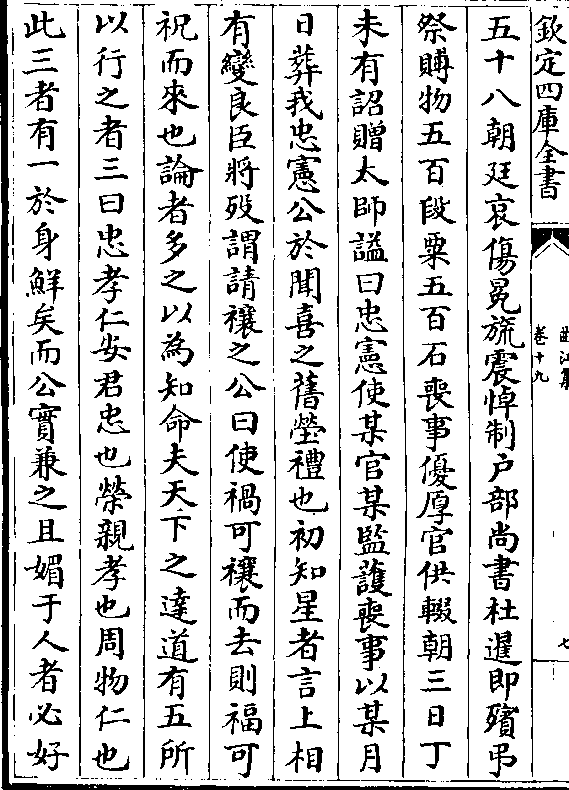 欽定四庫全書
曲江集
卷十九
七
五十八朝廷哀傷冕旒震悼制户部尚書杜暹即殯弔
祭賻物五百段粟五百石喪事優厚官供輟朝三日丁
未有詔贈太師謚曰忠憲使某官某監護喪事以某月
日葬我忠憲公於聞喜之舊塋禮也初知星者言上相
有變良臣將歿謂請禳之公曰使禍可禳而去則福可
祝而來也論者多之以為知命夫天下之達道有五所
以行之者三曰忠孝仁安君忠也榮親孝也周物仁也
此三者有一於身鮮矣而公實兼之且媚于人者必好